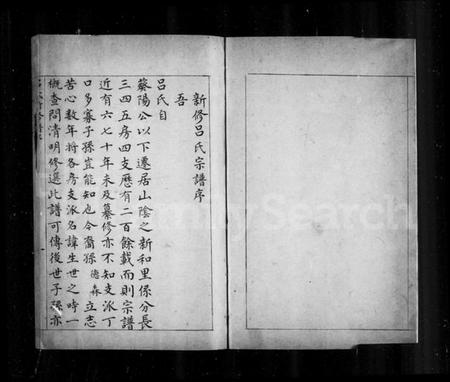 新修吕氏宗譜序
吾
吕氏自
蔡陽公以下遷居山陰之新和里係分長
三四五房四支歷有二百餘載而則宗譜
近有六七十年未及纂修亦不知支派丁
口多寡子孫豈能知也今裔孫德森立志
苦心数年将各房支派名諱生世之時一
概查問清明修選此譜可傳後世子孫亦